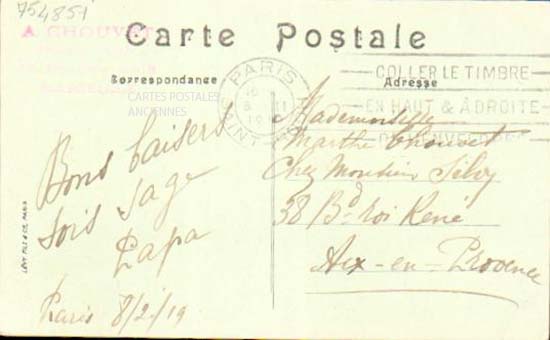 754851
A. CHOUVET
Carte Postale
Correspondance
Adresse
CARTES POSTALES
ANCIENNES
PARIS
COLLER LE TIMBRE
EN HAUT & A DROITE
Bons baisers
sois sage
Papa
Paris 8/2/19
Mademoiselle
Marthe Chouvet
Chez Monsieur Silvy
38 Bd roi René
Aix-en-Provence
LÉVY FILS & Cie, PARIS